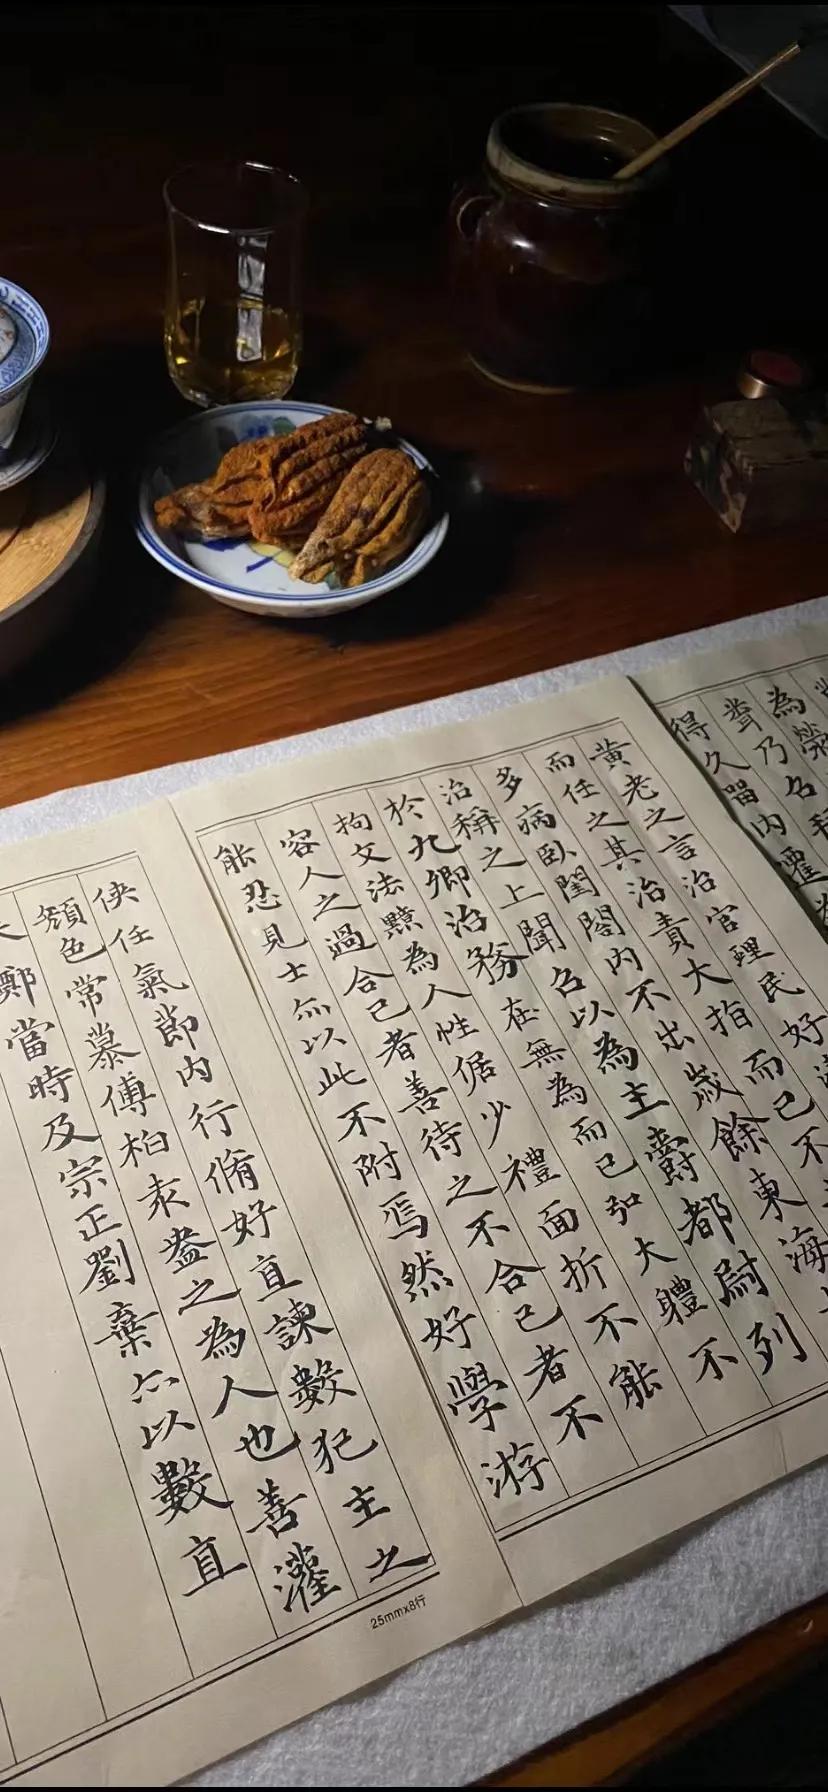 為滎
聞乃名
得久留内遷為
黄老之言治官理民好清
而任之其治責大指而已不
多病臥閨閤内不出歲餘東海
治稱之上聞名以為主爵都尉列
於九卿治務在無為而已弘大體不
拘文法黯為人性倨少禮面折不能
容人之過合己者善待之不合己者不
能忍見士亦以此不附焉然好學游
俠任氣節内行脩好直諫數犯主之
顏色常慕傅柏袁盎之為人也善灌
夫鄭當時及宗正劉棄亦以數直
25mmx8行